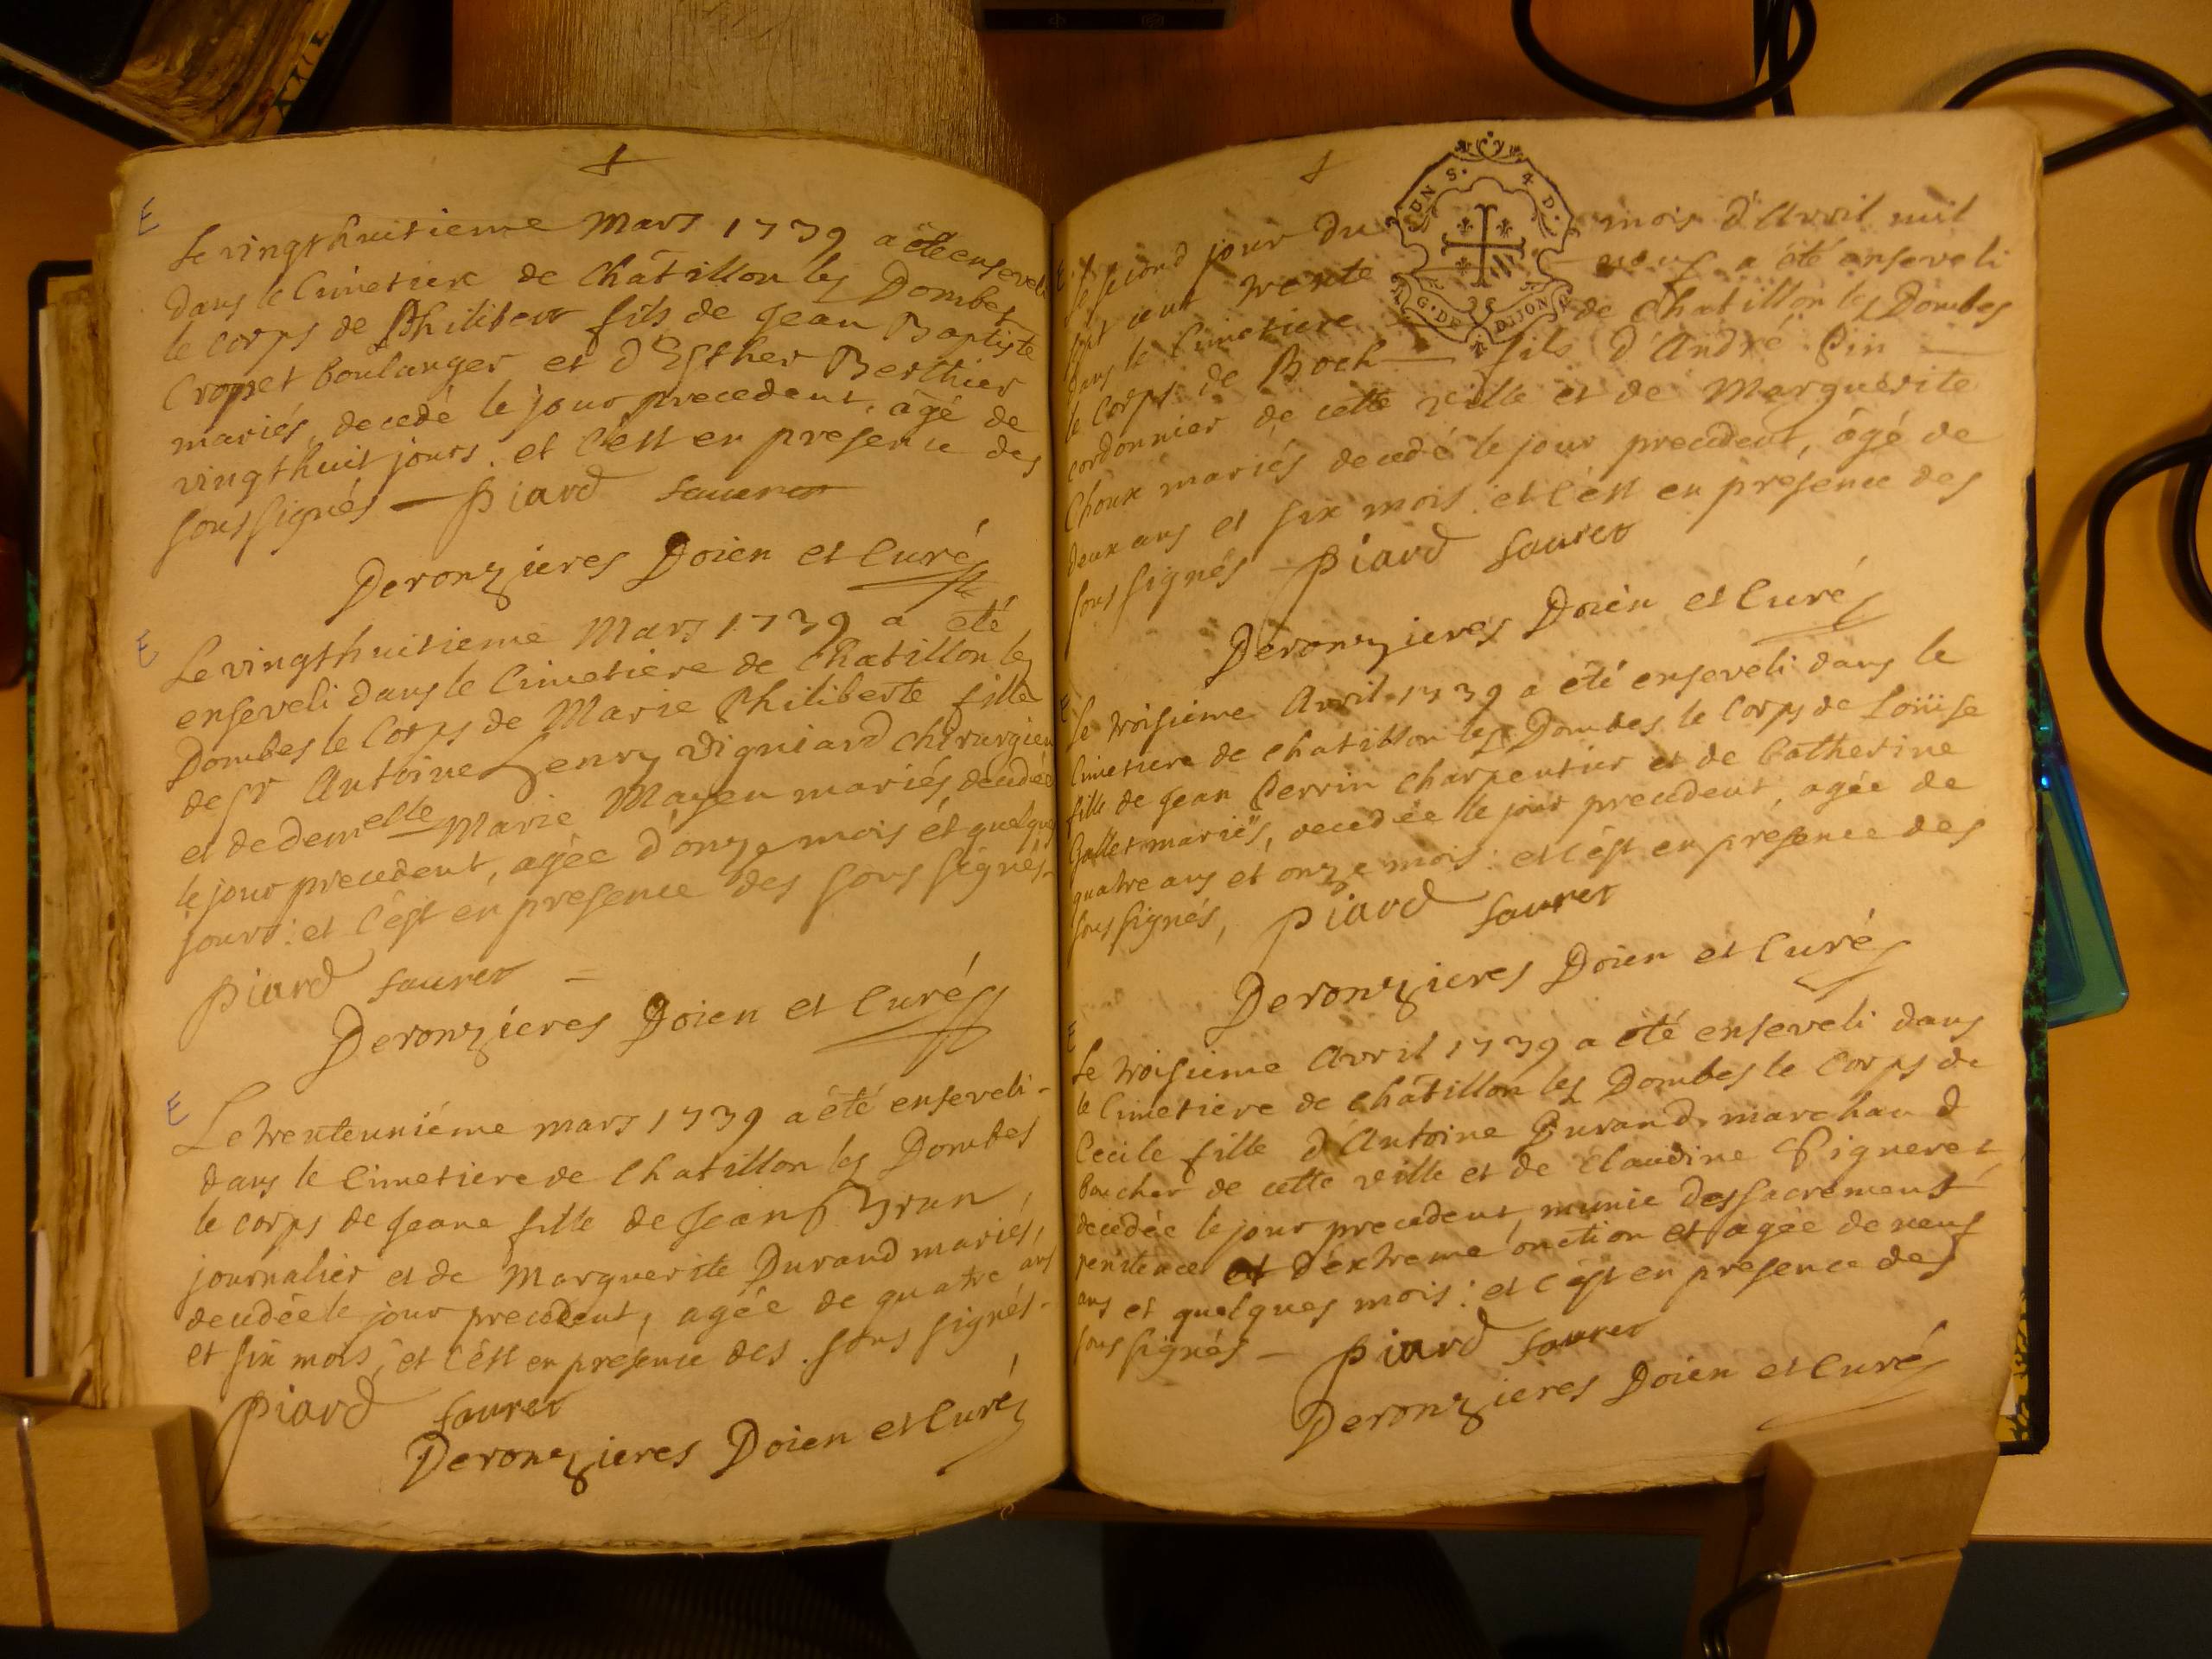 E
Le vingthuitieme Mars 1739 a été enseveli
dans le Cimetiere de Châtillon les Dombes
le corps de Philibert fils de Jean Baptiste
Cropet boulanger et d'Esther Berthier
mariés, decedé le jour precedent, âgé de
vingt huit jours. et c'est en presence des
soussignés — Piard Sauret
Deronzieres Doien et Curé
E
Le vingthuitieme Mars 1739 a été
enseveli dans le Cimetiere de Chatillon les
Dombes le Corps de Marie Philiberte fille
de sr Antoine Henry Vigniard chirurgien
et de demelle Marie Mayeu mariés, decedée
le jour precedent, agée d'onze mois et quelques
jours: et c'est en presence des sous signés -
Piard Sauret =
Deronzieres Doien et Curé
E
Le trenteuniéme mars 1739 a été enseveli -
dans le Cimetiere de Chatillon les Dombes
le corps de Jeane fille de Jean Brun,
journalier et de Marguerite Durand mariés,
decedée le jour precedent, agée de quatre ans
et six mois, et c'est en presence des sous signés -
Piard Sauret
Deronzieres Doien et Curé
UN S. 4 D.
G. DE DIJON
Le second jour du mois d'Avril mil
sept cent trente neuf a été enseveli
dans le Cimetiere de Chatillon les Dombes
le corps de Roch — fils d'André Pin —
cordonnier de cette ville et de Marguerite
Choux mariés decedé le jour precedent, âgé de
deux ans et six mois. et c'est en presence des
sous signés Piard Sauret
Deronzieres Doien et Curé
E
Le troisieme Avril 1739 a été enseveli dans le
Cimetiere de Chatillon les Dombes le Corps de Loüise
fille de Jean Perrin Charpentier et de Catherine
Gallet mariés, decedée le jour precedent, agée de
quatre ans et onze mois: et c'est en presence des
sous signés, Piard Sauret
Deronzieres Doien et Curé
E
Le troisieme Avril 1739 a été enseveli dans
le Cimetiere de Châtillon les Dombes le Corps de
Cecile fille d'Antoine Durand marchand
boucher de cette ville et de Claudine Pigneret
decedée le jour precedent, munie des sacremens
penitence et d'extreme onction et agée de neuf
ans et quelques mois: et c'est en presence des
sous signés — Piard Sauret
Deronzieres Doien et Curé